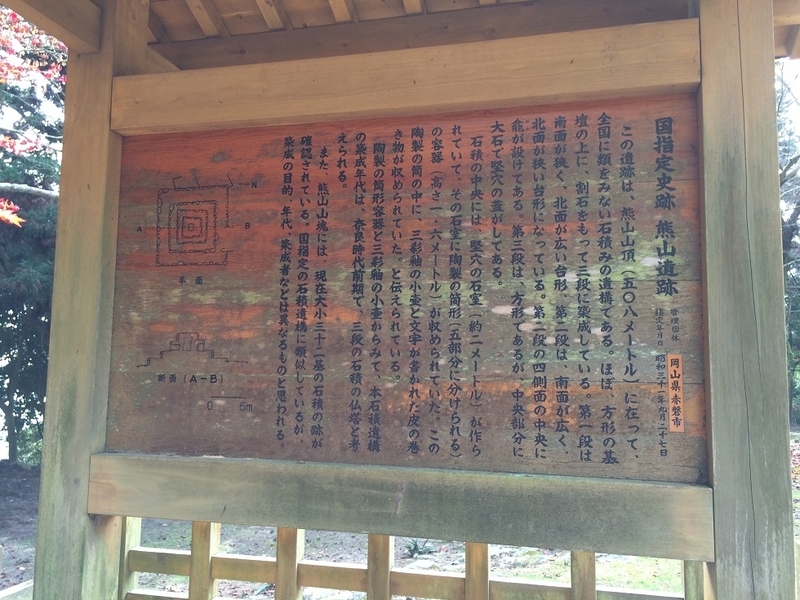 国指定史跡 熊山遺跡
管理団体 岡山県赤磐市
指定年月日 昭和三十一年九月二十七日
この遺跡は、熊山山頂(五〇八メートル)に在って、
全国に類をみない石積みの遺構である。ほぼ、方形の基
壇の上に、割石をもって三段に築成している。第一段は
南面が狭く、北面が広い台形、第二段は、南面が広く、
北面が狭い台形になっている。第二段の四側面の中央に
龕が設けてある。第三段は、方形であるが、中央部分に
大石で竪穴の蓋がしてある。
石積の中央には、竪穴の石室(約二メートル)が作ら
れていて、その石室に陶製の筒形(五部分に分けられる)
の容器(高さ一、六メートル)が収められていた。この
陶製の筒の中に、三彩釉の小壺と文字が書かれた皮の巻
き物が収められていた、と伝えられている。
陶製の筒形容器と三彩釉の小壺からみて、本石積遺構
の築成年代は、奈良時代前期で、三段の石積の仏塔と考
えられる。
また、熊山山塊には、現在大小三十二基の石積の跡が
確認されている。国指定の石積遺構に類似しているが、
築成の目的、年代、築成者などは異なるものと思われる。
N
A B
平面
断面(A-B)
0 5m